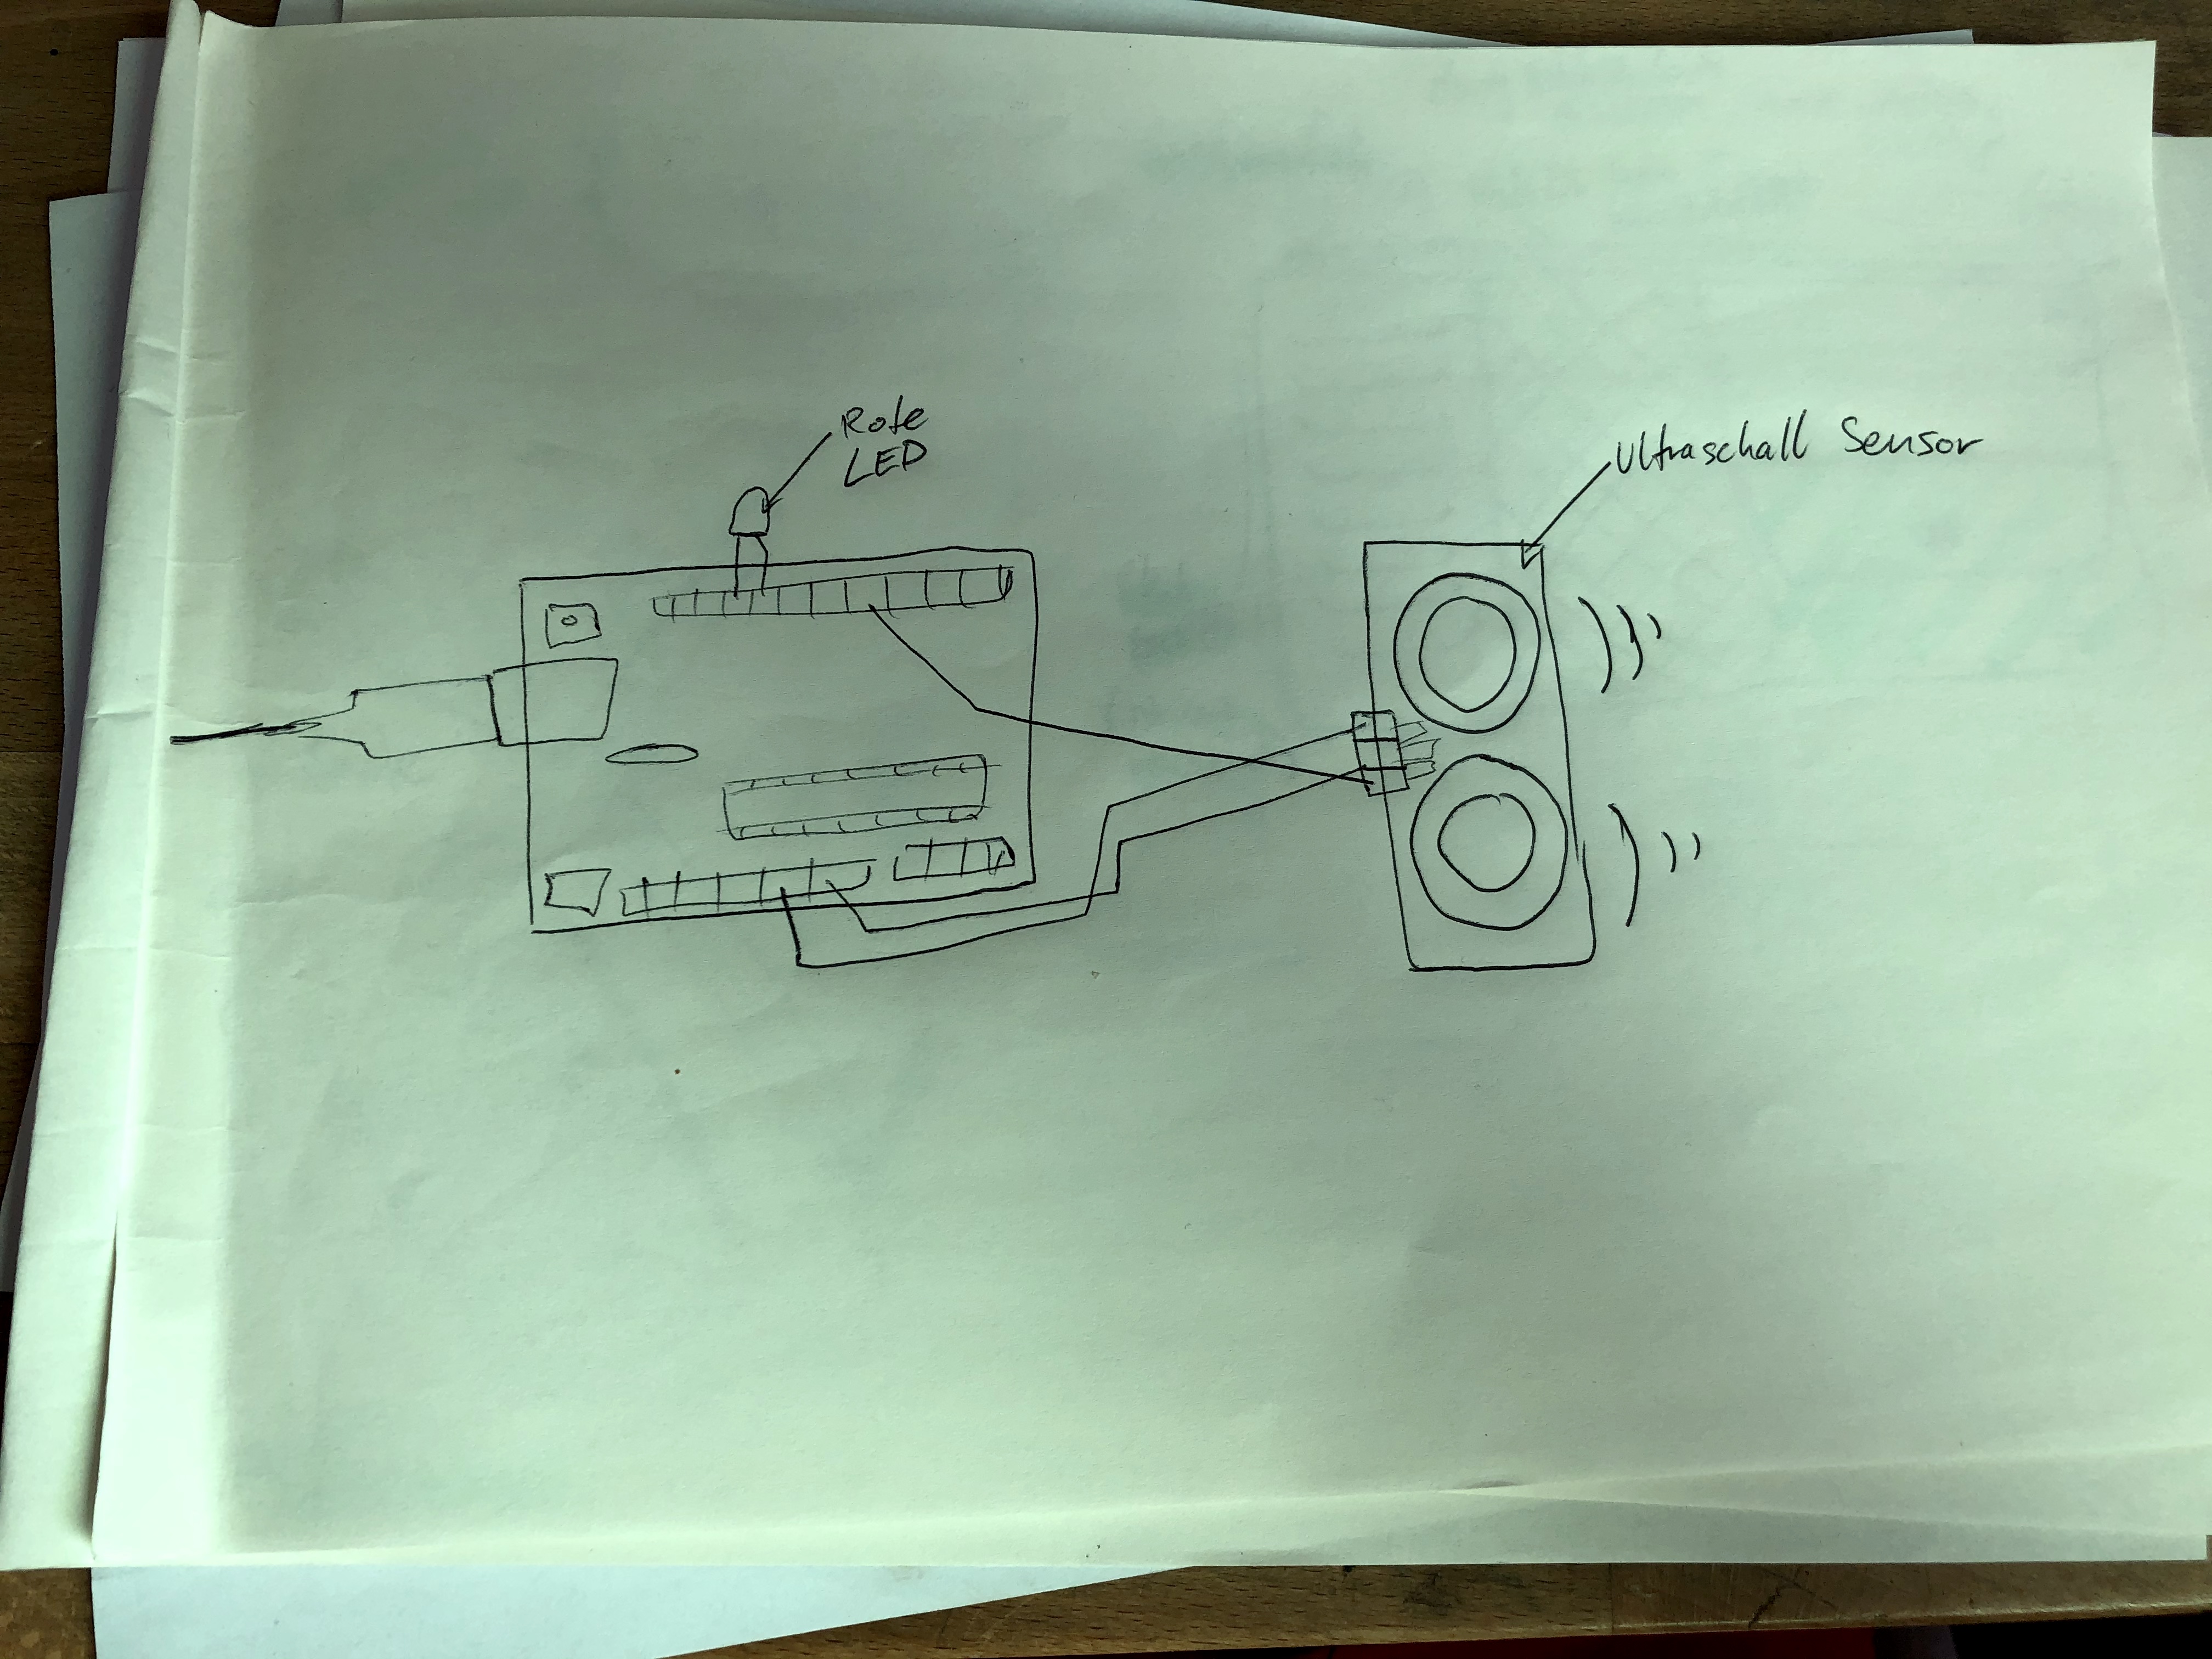 Rote
LED
Ultraschall Sensor